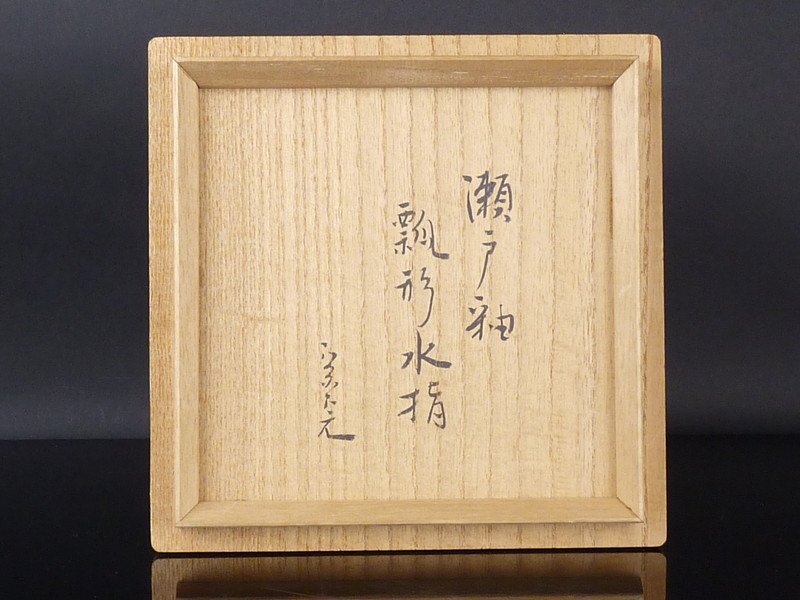 瀬戸釉
瓢形水指